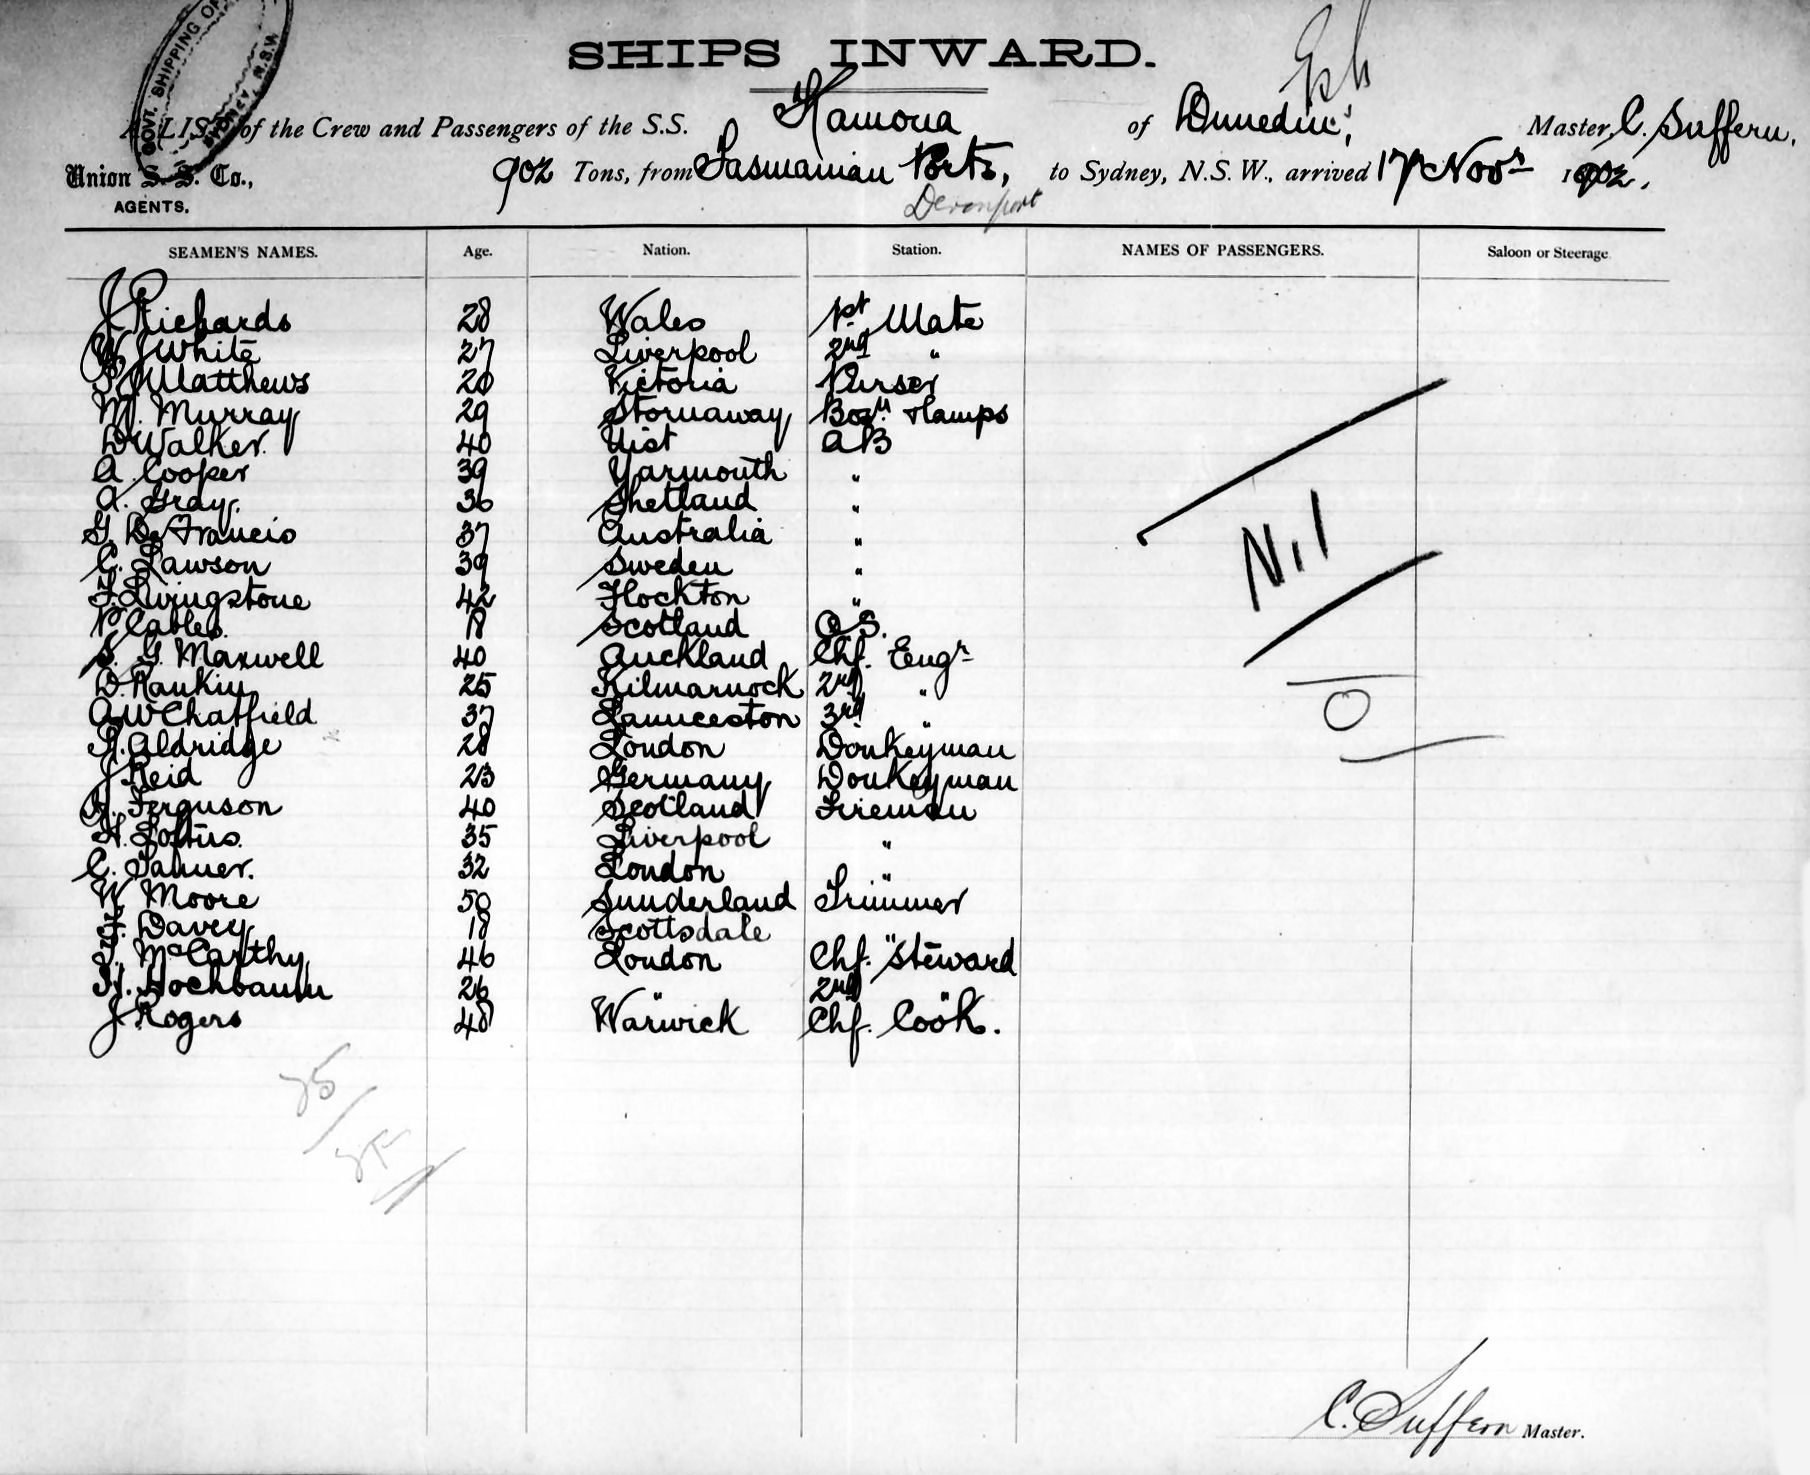 GOVT. SHIPPING OF
SYDNEY, N.S.W.
SHIPS INWARD.
A LIST of the Crew and Passengers of the S.S. Kamona of Dunedin, Master, C. Suffern.
Union S. S. Co., 902 Tons, from Tasmanian Ports, to Sydney, N.S.W., arrived 17 Novr 1902,
AGENTS.
Devonport
SEAMEN'S NAMES. Age. Nation. Station. NAMES OF PASSENGERS. Saloon or Steerage
J Richards 28 Wales 1st Mate
W J White 27 Liverpool 2nd "
Matthews 20 Victoria Purser
M. Murray 29 Stornaway Bosn Lamps
D Walker. 40 Uist AB
A. Cooper 39 Yarmouth "
A. Gray. 36 Shetland "
G. De Francis 37 Australia "
C. Lawson 39 Sweden "
F. Livingstone 42 Flockton "
P Cables. 18 Scotland O.S.
S. G. Maxwell 40 Auckland Chf. Engr
D. Rankin 25 Kilmarnock 2nd "
A W Chatfield 37 Launceston 3rd "
G. Aldridge 28 London Donkeyman
J Reid 23 Germany Donkeyman
H. Ferguson 40 Scotland Fireman
H. Loftus. 35 Liverpool "
C. Tanner. 32 London "
W Moore 50 Sunderland Trimmer
F. Davey 18 Scottsdale "
T. McCarthy 46 London Chf. Steward
H. Hochbaum 26 " 2nd "
J Rogers 48 Warwick Chf. Cook.
Nil
0
25
25
C. Suffern Master.